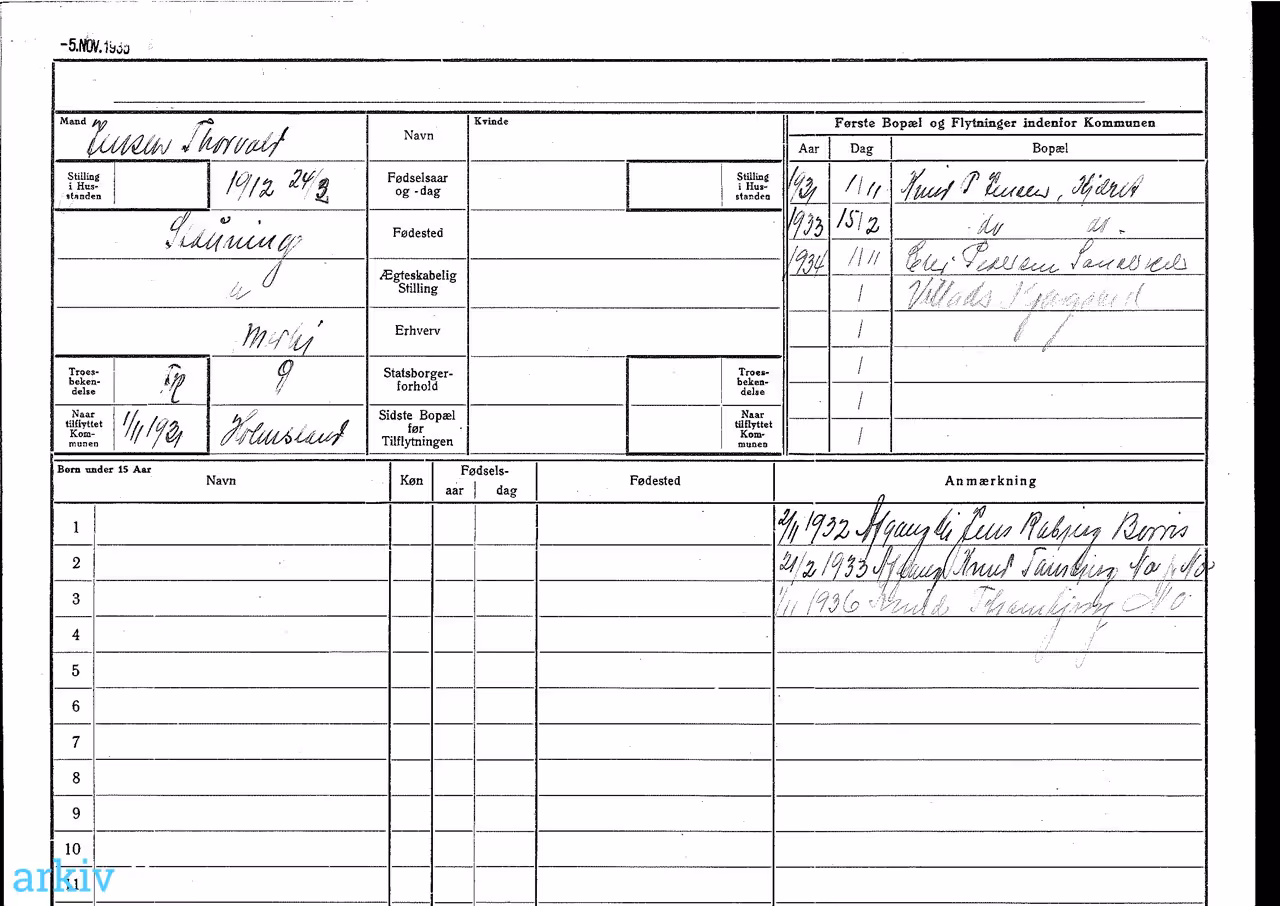 -5.NOV.1935
Mand
Jensen Thorvald
Navn
Kvinde
Stilling i Hus- standen
1912 24/3
Fødselsaar og -dag
Stilling i Hus- standen
Stauning
Fødested
u
Ægteskabelig Stilling
Erhverv
Troes- beken- delse
Fk
D
Statsborger- forhold
Troes- beken- delse
Naar tilflyttet Kom- munen
1/11 1931
Holmsland
Sidste Bopæl før Tilflytningen
Naar tilflyttet Kom- munen
Første Bopæl og Flytninger indenfor Kommunen
Aar Dag Bopæl
1931 1/11 Knud P Jensen, Kjæret
1933 15/2 do do -
1934 1/11 Pedersen
/ Villads Kjærgaard
/
/
/
/
Børn under 15 Aar
Navn
Køn
Fødsels-
aar dag
Fødested
Anmærkning
1 2/11 1932 Afgang til Jens Rabjerg Borris
2 21/2 1933 Afgang Knud No
3 1/11 1936 No
4
5
6
7
8
9
10
11
arkiv